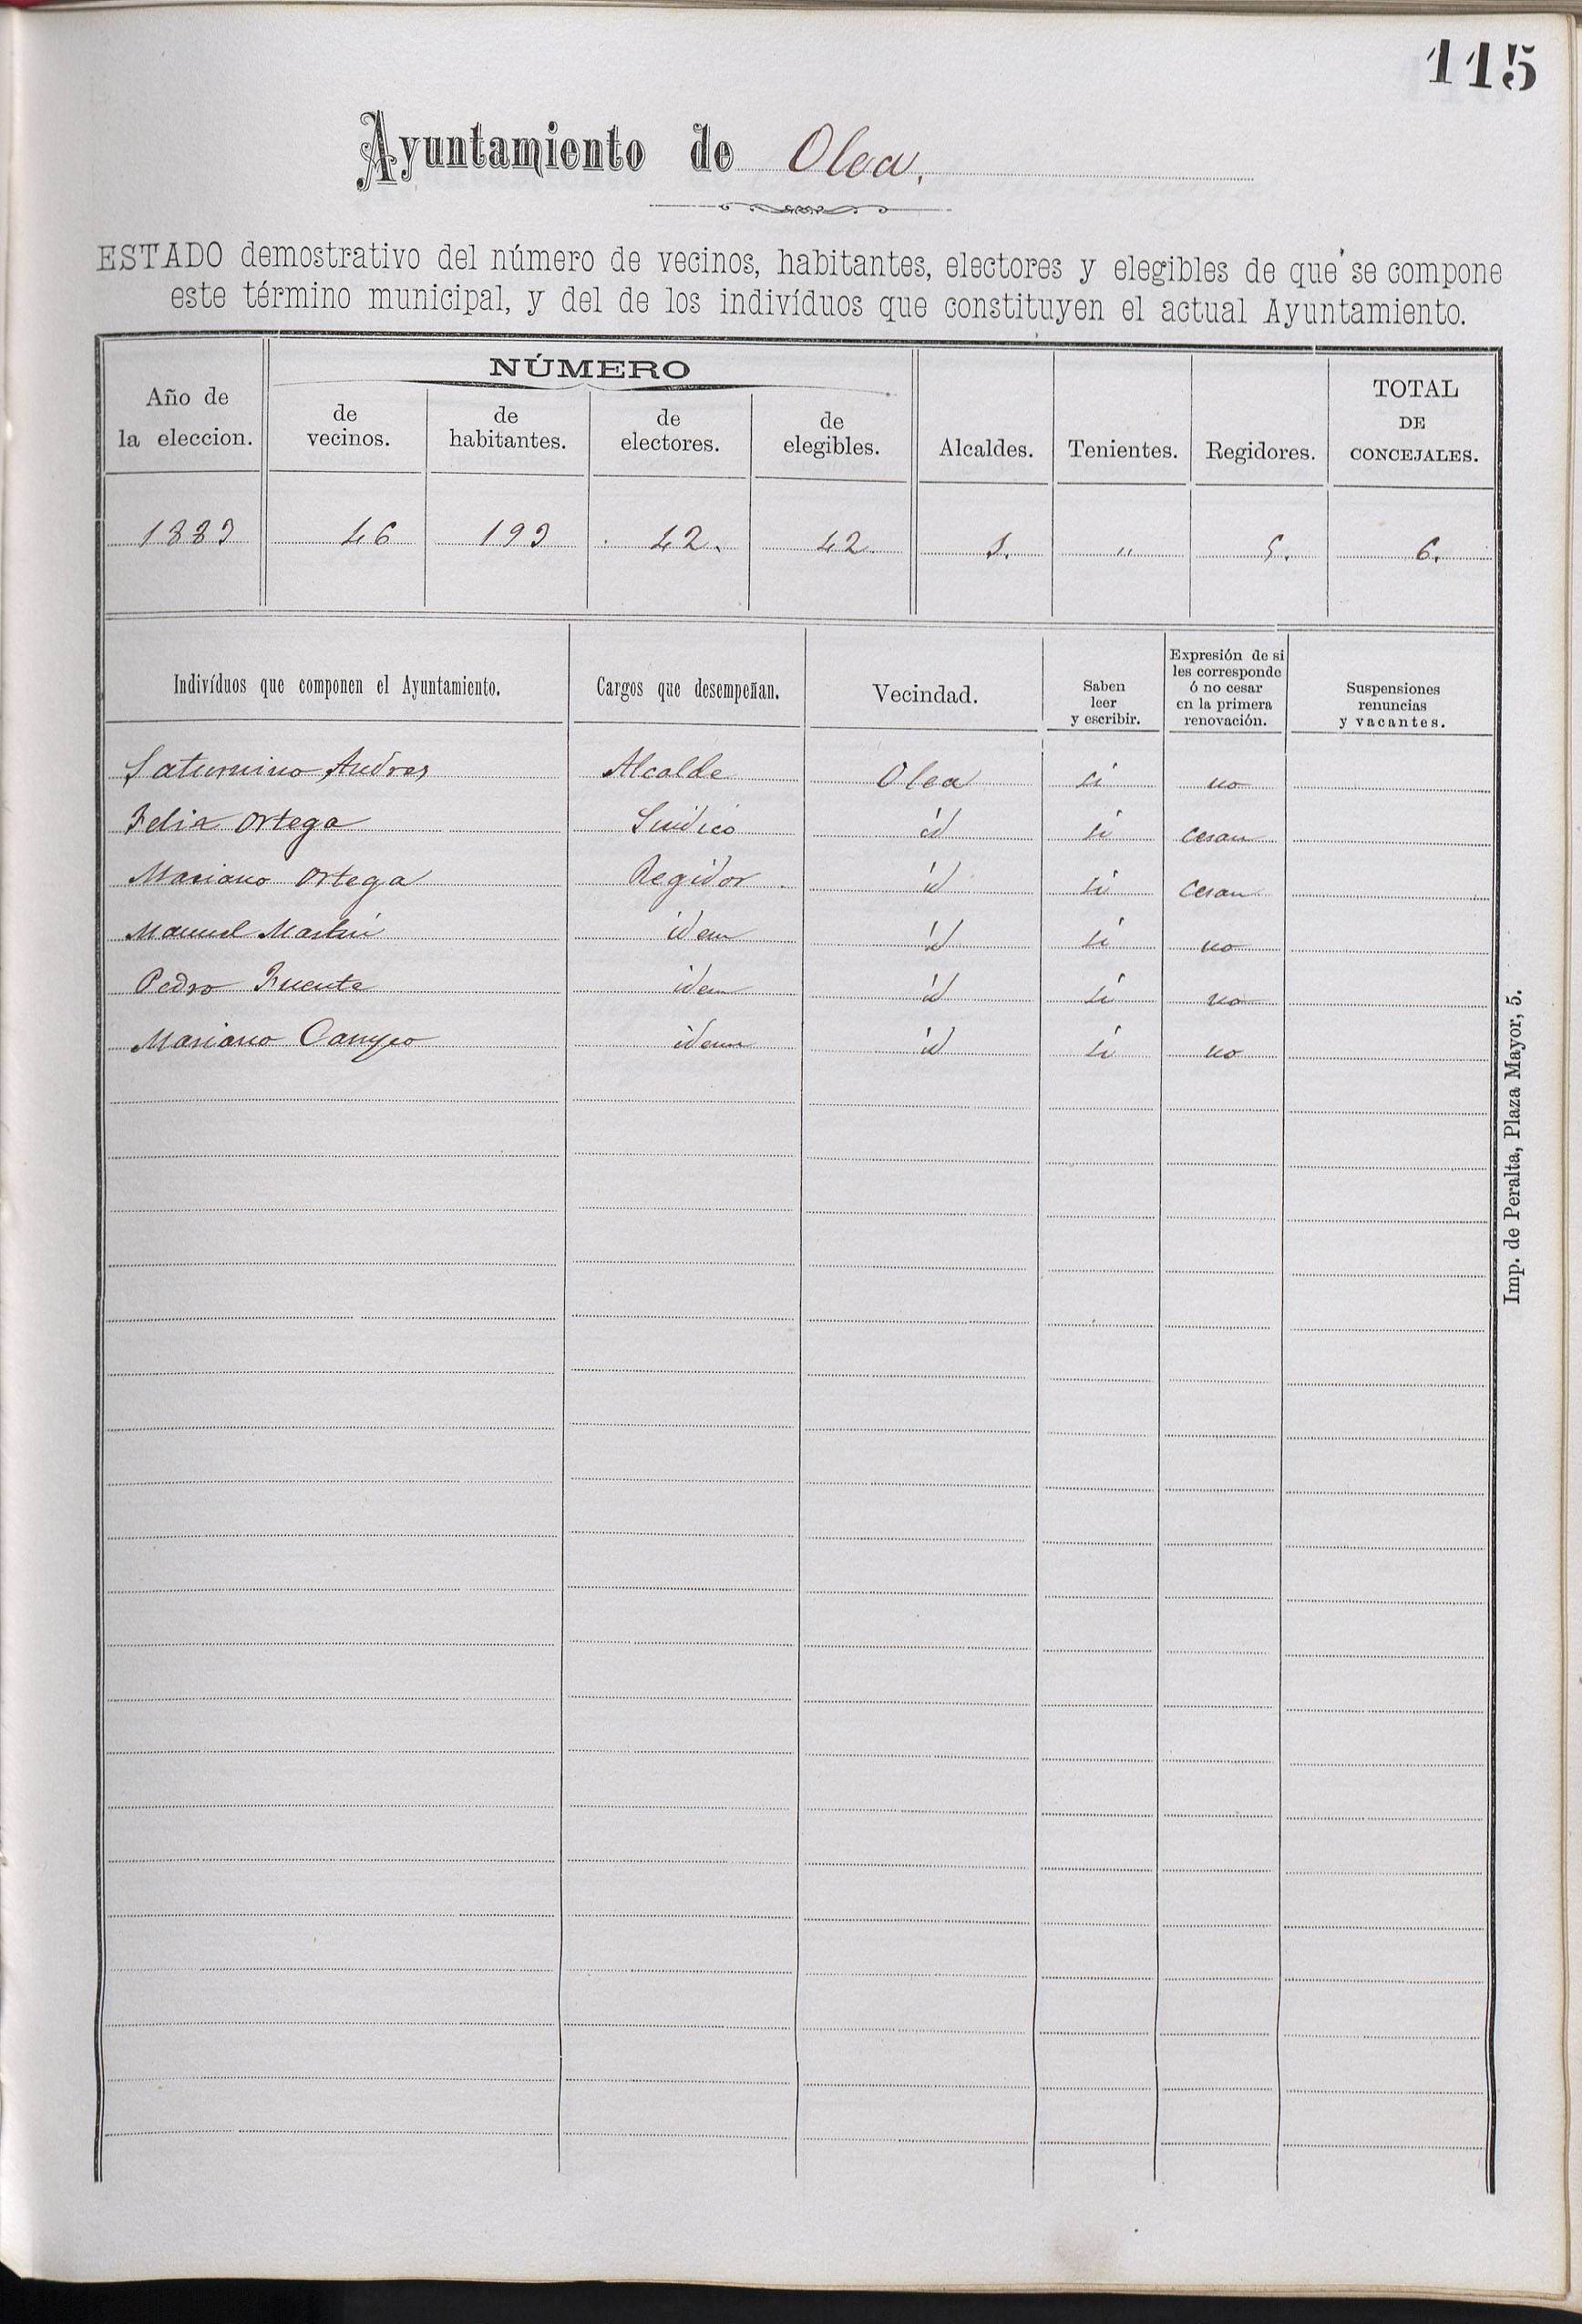 115
Ayuntamiento de Olea.
ESTADO demostrativo del número de vecinos, habitantes, electores y elegibles de que se compone
este término municipal, y del de los indivíduos que constituyen el actual Ayuntamiento.
Año de la eleccion. NÚMERO de vecinos. de habitantes. de electores. de elegibles. Alcaldes. Tenientes. Regidores. TOTAL DE CONCEJALES.
1883 46 193 42. 42. 1. " 5. 6.
Indivíduos que componen el Ayuntamiento. Cargos que desempeñan. Vecindad. Saben leer y escribir. Expresión de si les corresponde ó no cesar en la primera renovación. Suspensiones renuncias y vacantes.
Saturnino Andres Alcalde Olea si no
Felix Ortega Sindico id si cesan
Mariano Ortega Regidor id si cesan
Manuel Martin idem id si no
Pedro Fuente idem id si no
Mariano Campo idem id si no
Imp. de Peralta, Plaza Mayor, 5.